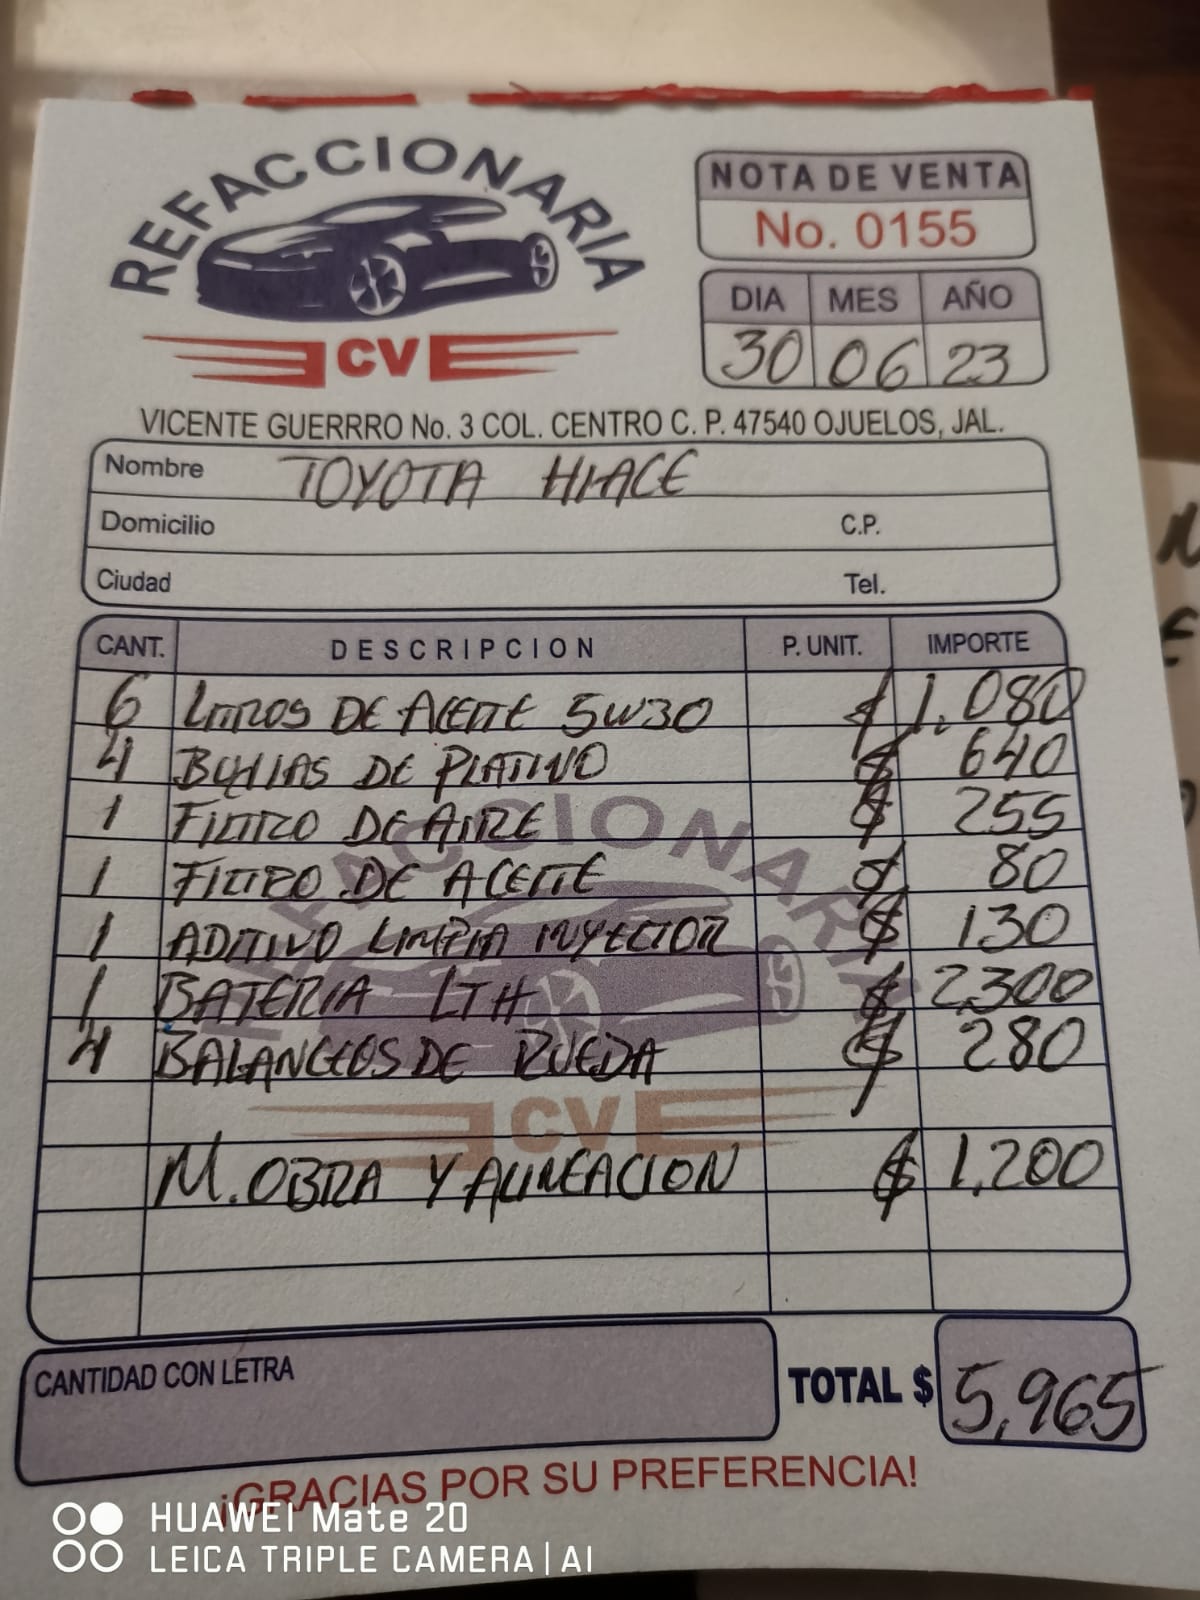 REFACCIONARIA
CV
NOTA DE VENTA
No. 0155
DIA MES AÑO
30 06 23
VICENTE GUERRRO No. 3 COL. CENTRO C. P. 47540 OJUELOS, JAL.
Nombre TOYOTA HIACE
Domicilio C.P.
Ciudad Tel.
CANT. DESCRIPCION P. UNIT. IMPORTE
6 LITROS DE ACEITE 5W30 $ 1,080
4 BUJIAS DE PLATINO $ 640
1 FILTRO DE AIRE $ 255
1 FILTRO DE ACEITE $ 80
1 ADITIVO LIMPIA INYECTOR $ 130
1 BATERIA LTH $ 2300
4 BALANCEOS DE RUEDA $ 280
M. OBRA Y ALINEACION $ 1,200
REFACCIONARIA
CV
CANTIDAD CON LETRA
TOTAL $ 5,965
¡GRACIAS POR SU PREFERENCIA!
HUAWEI Mate 20
LEICA TRIPLE CAMERA | AI